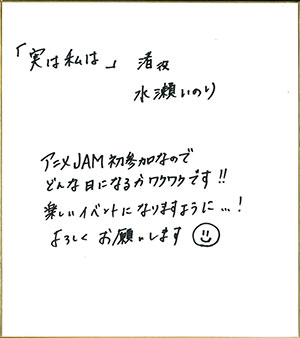 「実は私は」 渚役
水瀬いのり
アニメJAM初参加なので
どんな日になるかワクワクです!!
楽しいイベントになりますように…!
よろしくお願いします